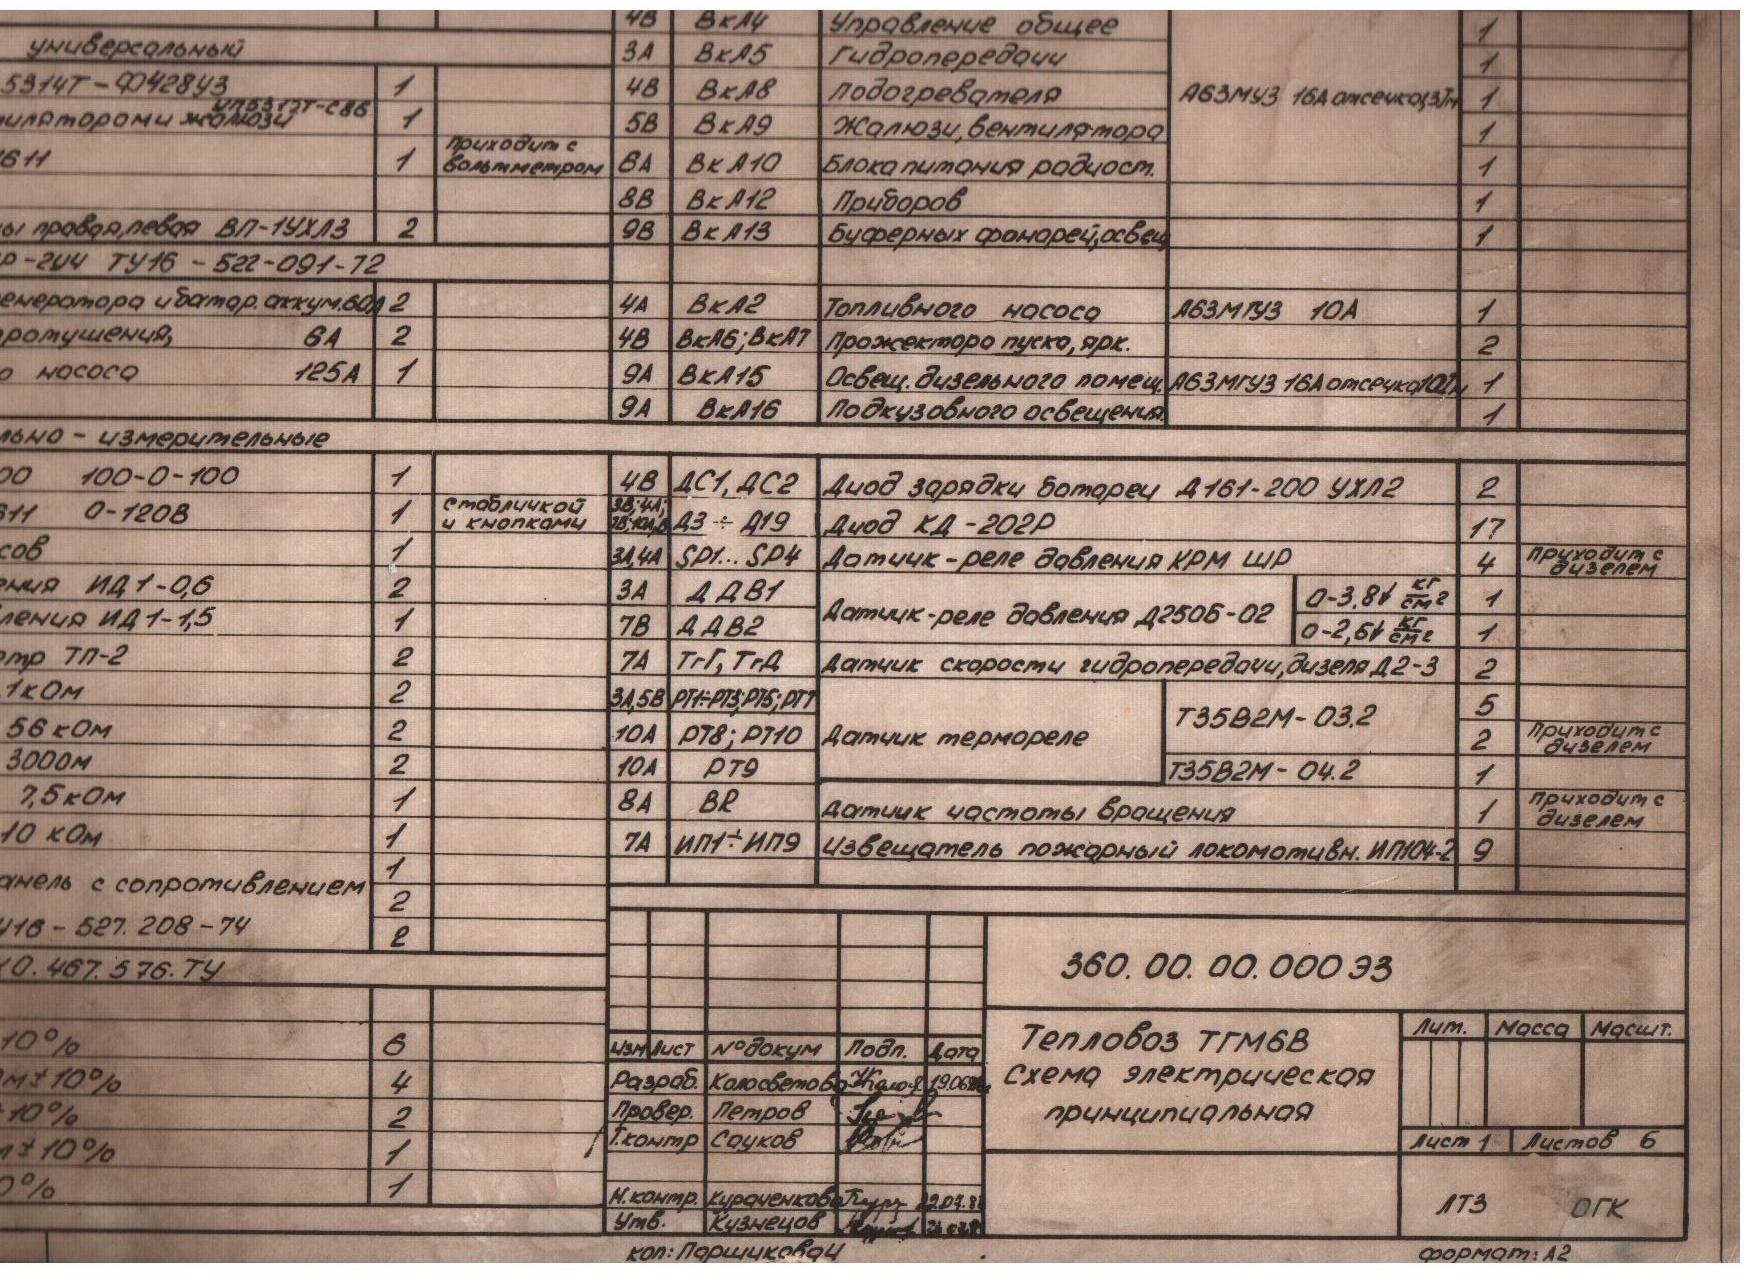 4В ВкА4 Управление общее 1
универсальный
3А ВкА5 Гидропередачи 1
5314Т-Ф428У3 1
4В ВкА8 Подогревателя А63МУ3 16А отсечка 1
УП5312Т-С86
жалюзи 1
5В ВкА9 Жалюзи, вентилятора 1
611 1 приходит с
вольтметром
8А ВкА10 Блока питания радиост. 1
8В ВкА12 Приборов 1
правая, левая ВП-1УХЛ3 2
9В ВкА13 Буферных фонарей, освещ 1
Р-2У4 ТУ16-522-091-72
енератора и батар. аккум. 60А 2
4А ВкА2 Топливного насоса А63МГУ3 10А 1
ротушения, 6А 2
4В ВкА6; ВкА7 Прожектора пуско, ярк. 2
о насоса 125А 1
9А ВкА15 Освещ. дизельного помещ. А63МГУ3 16А отсечка 1
9А ВкА16 Подкузовного освещения. 1
льно-измерительные
00 100-0-100 1
4В ДС1, ДС2 Диод зарядки батареи Д161-200 УХЛ2 2
611 0-120В 1 с табличкой
и кнопками
Д3÷Д19 Диод КД-202Р 17
сов 1
3А,4А SP1...SP4 Датчик-реле давления КРМ ШР 4 приходит с
дизелем
ения ИД1-0,6 2
3А ДДВ1 Датчик-реле давления Д250Б-02 0-3,8 кг/см² 1
ления ИД1-1,5 1
7В ДДВ2 0-2,6 кг/см² 1
тр ТП-2 2
7А ТгГ, ТгД Датчик скорости гидропередачи, дизеля Д2-3 2
1кОм 2
3А,5В РТ1÷РТ3; РТ5; РТ7 Датчик термореле Т35В2М-03.2 5
56 кОм 2
10А РТ8; РТ10 2 Приходит с
дизелем
300Ом 2
10А РТ9 Т35В2М-04.2 1
7,5кОм 1
8А BR Датчик частоты вращения 1 приходит с
дизелем
10 кОм 1
7А ИП1÷ИП9 Извещатель пожарный локомотивн. ИП104-2 9
1
анель с сопротивлением
2
У16-527.208-74 2
0.467.576.ТУ
360.00.00.000 Э3
10% 6
м±10% 4
±10% 2
м±10% 1
0% 1
Тепловоз ТГМ6В
Схема электрическая
принципиальная
Лит. Масса Масшт.
Лист 1 Листов 6
ЛТЗ ОГК
Изм Лист №докум Подп. Дата
Разраб. Колосветова
Провер. Петров
Т.контр Сауков
Н.контр. Кураченкова
Утв. Кузнецов
коп: Паршикова
формат: А2